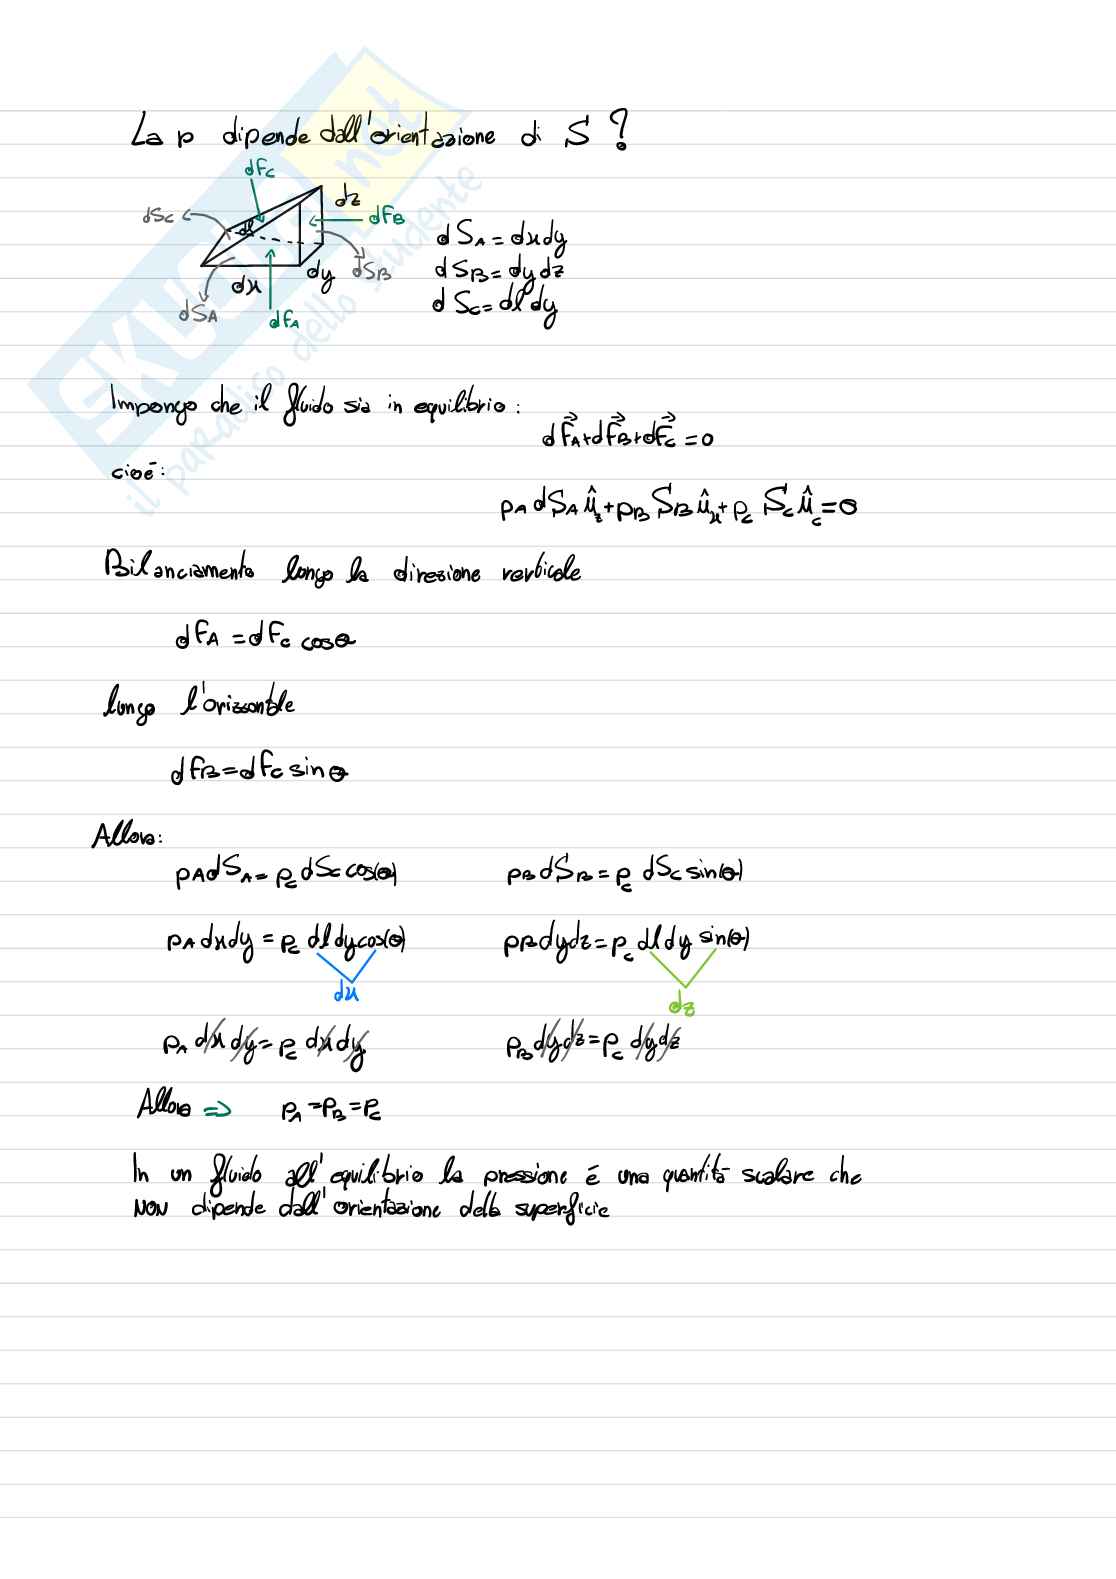 La p dipende dall'orientazione di S?
dFc
dz
dSc
dl
dFB
dSA = dxdy
dx
dy
dSB
dSB = dydz
dSA
dFA
dSc = dl dy
Impongo che il fluido sia in equilibrio:
dF⃗A+dF⃗B+dF⃗c = 0
cioè:
pA dSA û_z + pB SB û_x + pc Sc û_c = 0
Bilanciamento lungo la direzione verticale
dFA = dFc cosθ
lungo l'orizzontale
dFB = dFc sinθ
Allora:
pA dSA = pc dSc cos(θ)
pB dSB = pc dSc sin(θ)
pA dxdy = pc dl dy cos(θ)
pB dydz = pc dl dy sin(θ)
dx
dz
pA dx dy = pc dx dy
pB dy dz = pc dy dz
Allora ⇒ pA = pB = pc
In un fluido all'equilibrio la pressione é una quantità scalare che
NON dipende dall'orientazione della superficie
SKUOLA.net
il paradiso dello studente